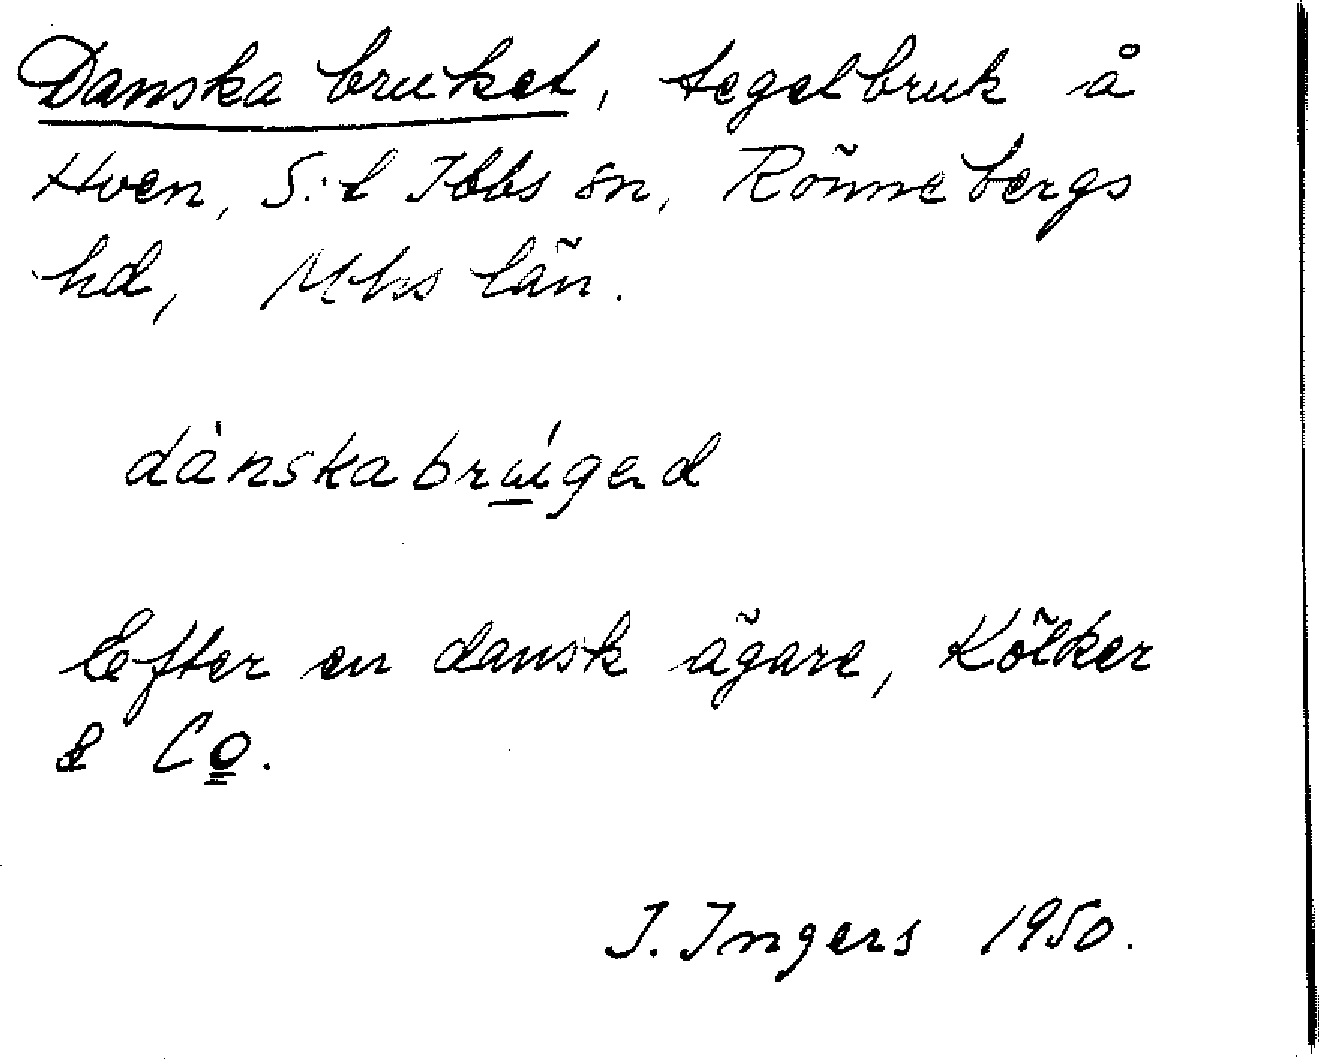 Danska bruket, tegelbruk å
Hven, S:t Ibbs sn, Rönnebergs
hd, Mhs län.
dànskabrúged
Efter en dansk ägare, Kölker
& Co.
I. Ingers 1950.